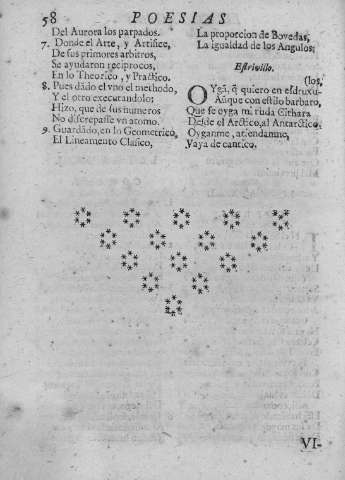 58 POESIAS
Del Aurora los parpados.
7. Donde el Arte, y Artifice,
De sus primores arbitros,
Se ayudaron reciprocos,
En lo Theorico, y Practico.
8. Pues dādo el vno el methodo,
Y el otro executandolo;
Hizo, que de sus numeros
No discrepasse vn atomo.
9. Guardādo, en lo Geometrico,
El Lineamento Clasico,
La proporcion de Bovedas,
La igualdad de los Angulos;
Estrivillo.
(los,
OYgā, q̄ quiero en esdruxu-
Aūque con estilo barbaro,
Que se oyga mi ruda Cithara
Desde el Arctico, al Antarctico,
Oyganme, atiendanme,
Vaya de cantico.
VI-